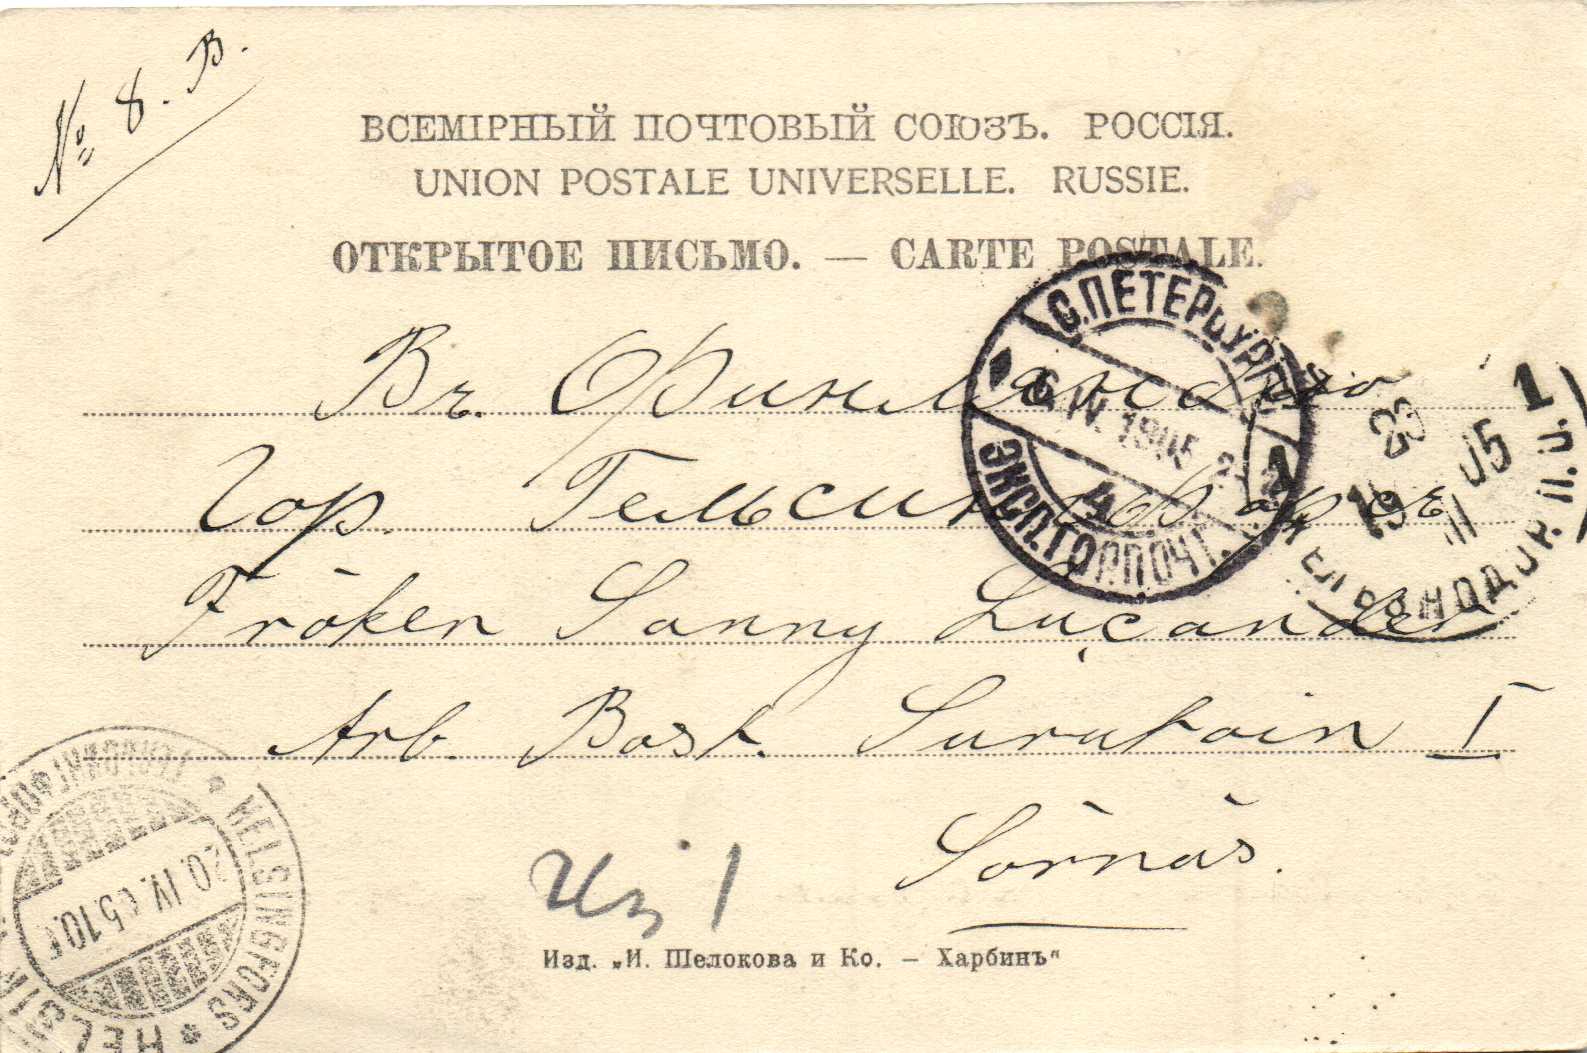 № 8. B.
ВСЕМІРНЫЙ ПОЧТОВЫЙ СОЮЗЪ. РОССІЯ.
UNION POSTALE UNIVERSELLE. RUSSIE.
ОТКРЫТОЕ ПИСЬМО. — CARTE POSTALE.
С.ПЕТЕРБУРГЪ
6 IV. 1905
1
4
ЭКСП.ГОР.ПОЧТ.
1
05
Въ. Финляндію
Гор. Гельсингфорсъ
Fröken Sanny Lucander
Arb. Bost. Surutoin I
Sörnäs.
HELSINGFORS * HELSIN
20.IV.05.10
Изд. „И. Шелокова и Ко. — Харбинъ"